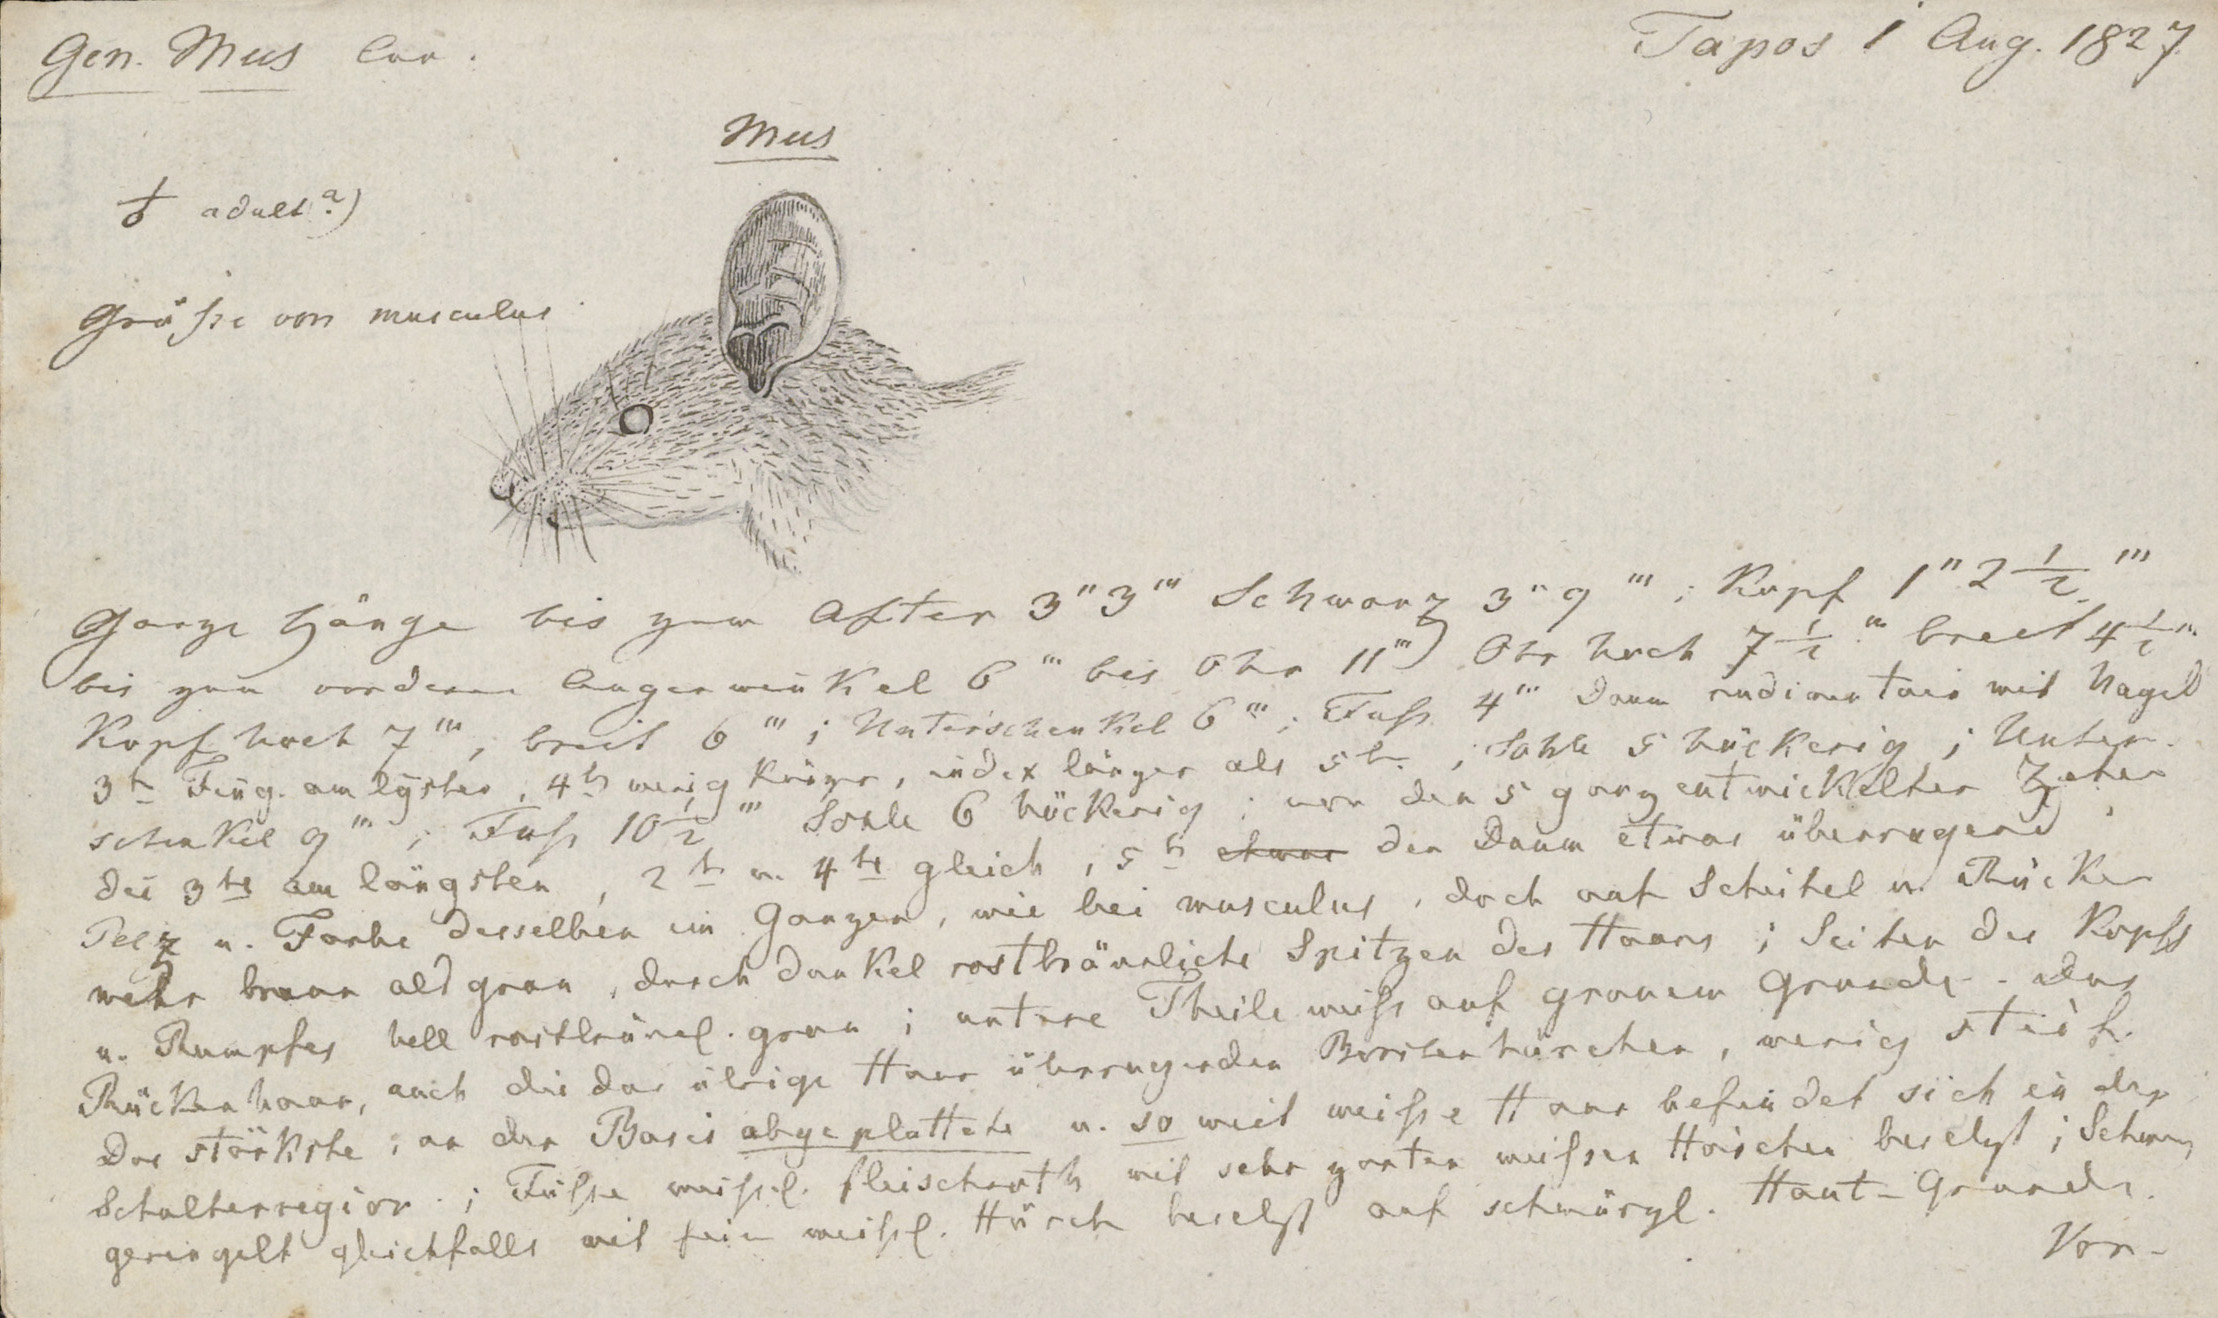 Gen. Mus Cuv.
Tapos 1 Aug. 1827
Mus
♂ adult a)
Größe von musculus
Ganze Länge bis zum After 3" 3''' Schwanz 3" 9'''; Kopf 1" 2 1/2'''
bis zum vordern Augenwinkel 6''' bis Ohr 11''') Ohr hoch 7 1/2''' breit 4 1/2'''
Kopf hoch 7''', breit 6'''; Unterschenkel 6'''; Fuß 4''' Daum rudimentair mit Nagel
3tr Fing. am lgsten, 4tr wenig kürzer, index länger als 5tr; Sohle 5 höckerig; Unter-
schenkel 9'''; Fuß 10 1/2''' Sohle 6 höckerig; von den 5 ganz entwickelten Zehen
die 3te am längsten, 2te u. 4te gleich, 5te etwas den Daum etwas überragend;
Pelz u. Farbe desselben im Ganzen, wie bei musculus, doch auf Scheitel u. Rücken
mehr braun als grau, durch dunkel rostbräunliche Spitzen des Haars; Seiten des Kopfs
u. Rumpfes hell rostbräunl. grau; untere Theile weiß auf grauem Grunde. Das
Rückenhaar, auch die das übrige Haar überragenden Borstenhärchen, wenig steif.
Das stärkste, an der Basis abgeplattete u. so weit weiße Haar befindet sich in der
Schulterregion.; Füße weißl. fleischroth mit sehr zarten weißen Härchen besetzt; Schwanz
geringelt gleichfalls mit fein weißl. Härch besetzt auf schwärzl. Haut-Grunde.
Vor-